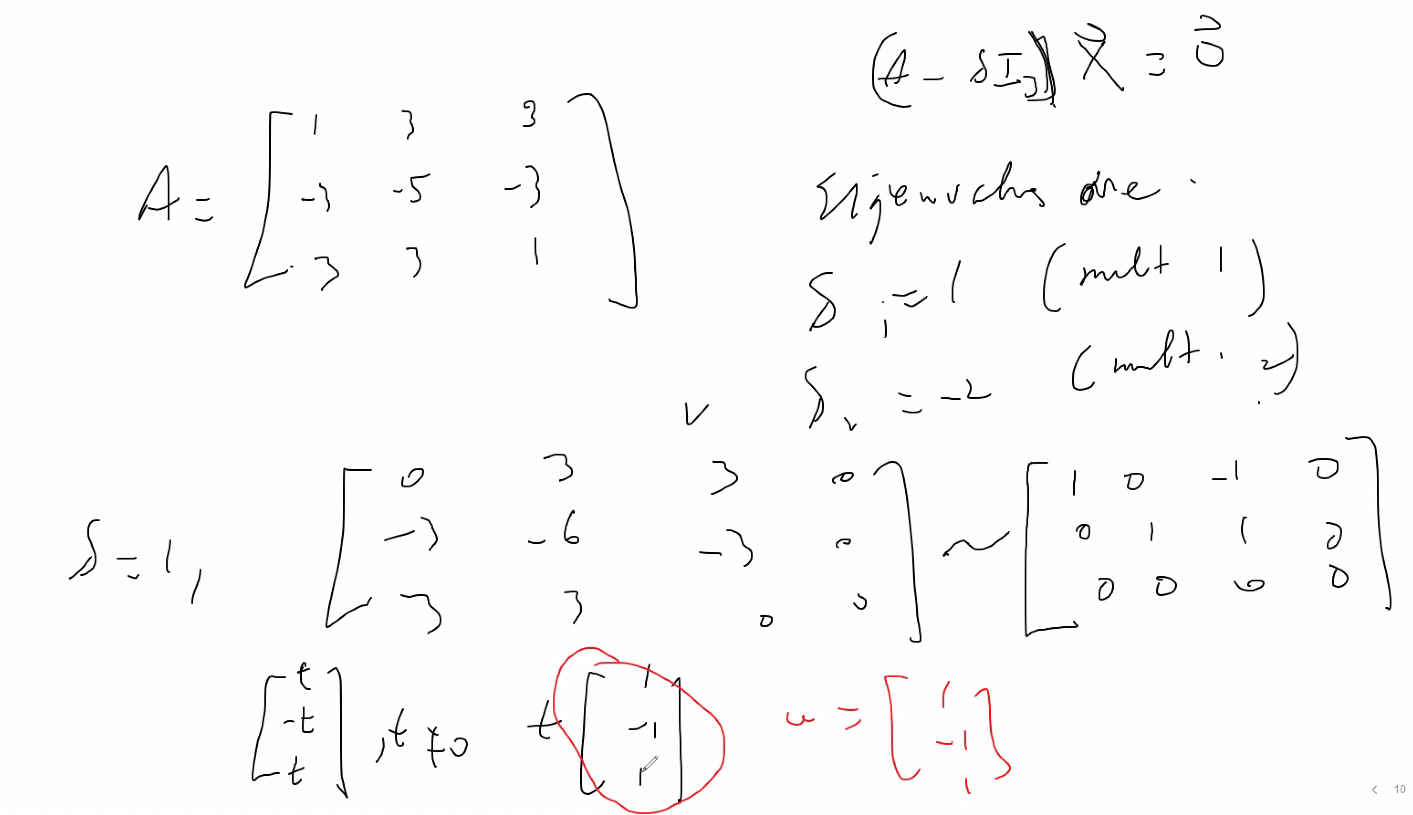 (A - δI₃) x⃗ = 0⃗
A = [ 1 3 3
-3 -5 -3
3 3 1 ]
Eigenvalues are
δ₁ = 1 (mult 1)
δ₂ = -2 (mult. 2)
δ = 1, [ 0 3 3 0 ~ [ 1 0 -1 0
-3 -6 -3 0 0 1 1 0
3 3 0 0 ] 0 0 0 0 ]
[ t -t t ] , t ≠ 0 t [ 1 -1 1 ] u = [ 1 -1 1 ]
< 10